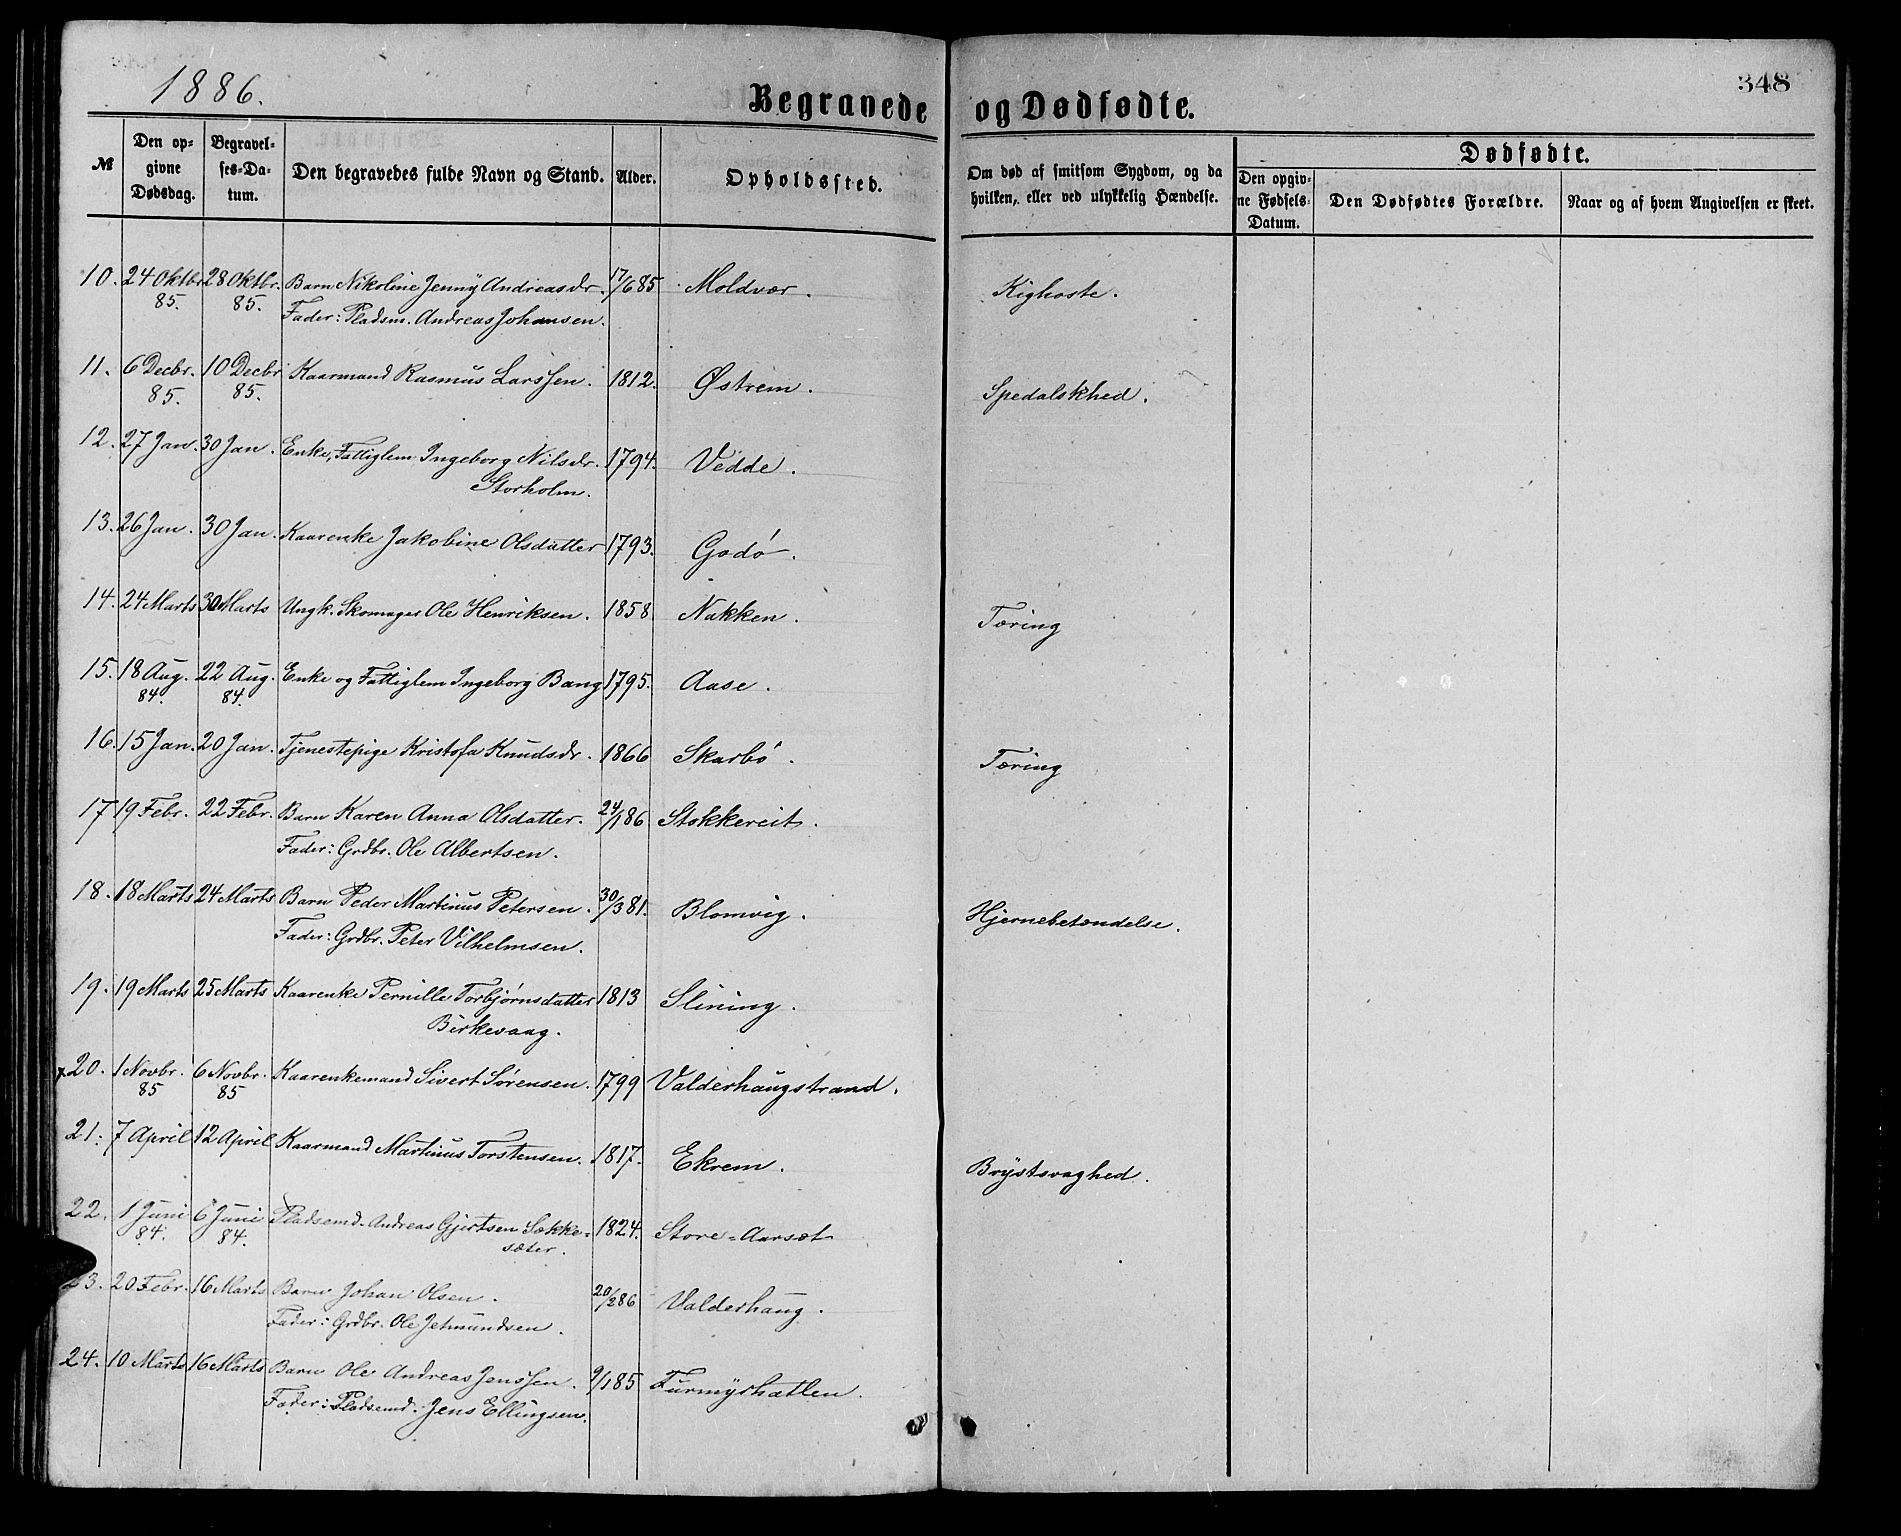 1886.
348
Begravede og Dødfødte.
№
Den opgivne Dødsdag.
Begravelses-Datum.
Den begravedes fulde Navn og Stand.
Alder.
Opholdssted.
Om død af smitsom Sygdom, og da hvilken, eller ved ulykkelig Hændelse.
Dødfødte.
Den opgivne Fødsels-Datum.
Den Dødfødtes Forældre.
Naar og af hvem Angivelsen er skeet.
10. 24 Oktbr 85. 28 Oktbr. 85. Barn Nikoline Jenny Andreasdr. 17/6 85 Moldvær. Kighoste.
Fader: Pladsm. Andreas Johansen.
11. 6 Decbr. 85. 10 Decbr 85. Kaarmand Rasmus Larssen. 1812. Østrem. Spedalskhed.
12. 27 Jan. 30 Jan. Enke, Fattiglem Ingeborg Nilsdr. 1794. Vedde.
Storholm.
13. 26 Jan. 30 Jan. Kaarenke Jakobine Olsdatter 1793. Godø.
14. 24 Marts 30 Marts Ungk. Skomager Ole Henriksen. 1858 Nakken. Tæring
15. 18 Aug. 84. 22 Aug. 84. Enke og Fattiglem Ingeborg Bang 1795. Aase.
16. 15 Jan. 20 Jan. Tjenestepige Kristofa Knudsdr. 1866 Skarbø. Tæring
17 19 Febr. 22 Febr. Barn Karen Anna Olsdatter. 24/1 86 Stokkereit.
Fader: Grdbr. Ole Albertsen.
18. 18 Marts 24 Marts Barn Peder Martinus Petersen. 30/3 81. Blomvig. Hjernebetændelse.
Fader: Grdbr. Peter Vilhelmsen.
19. 19 Marts 25 Marts Kaarenke Pernille Torbjørnsdatter 1813 Slining.
Birkevaag.
20. 1 Novbr. 85 6 Novbr. 85 Kaarenkemand Sivert Sørensen. 1799 Valderhaugstrand.
21. 7 April 12 April Kaarmand Martinus Torstensen. 1817. Ekrem. Brystsvaghed.
22. 1 Juni 84. 6 Juni 84. Pladsemd. Andreas Gjertsen Sække- 1824. Store-Aarsæt
sæter.
23. 20 Febr. 16 Marts Barn Johan Olsen. 20/2 86 Valderhaug.
Fader: Grdbr. Ole Jetmundsen.
24. 10 Marts 16 Marts Barn Ole Andreas Jenssen. 9/1 85 Furmyrhatlen.
Fader: Pladsemd. Jens Ellingsen.